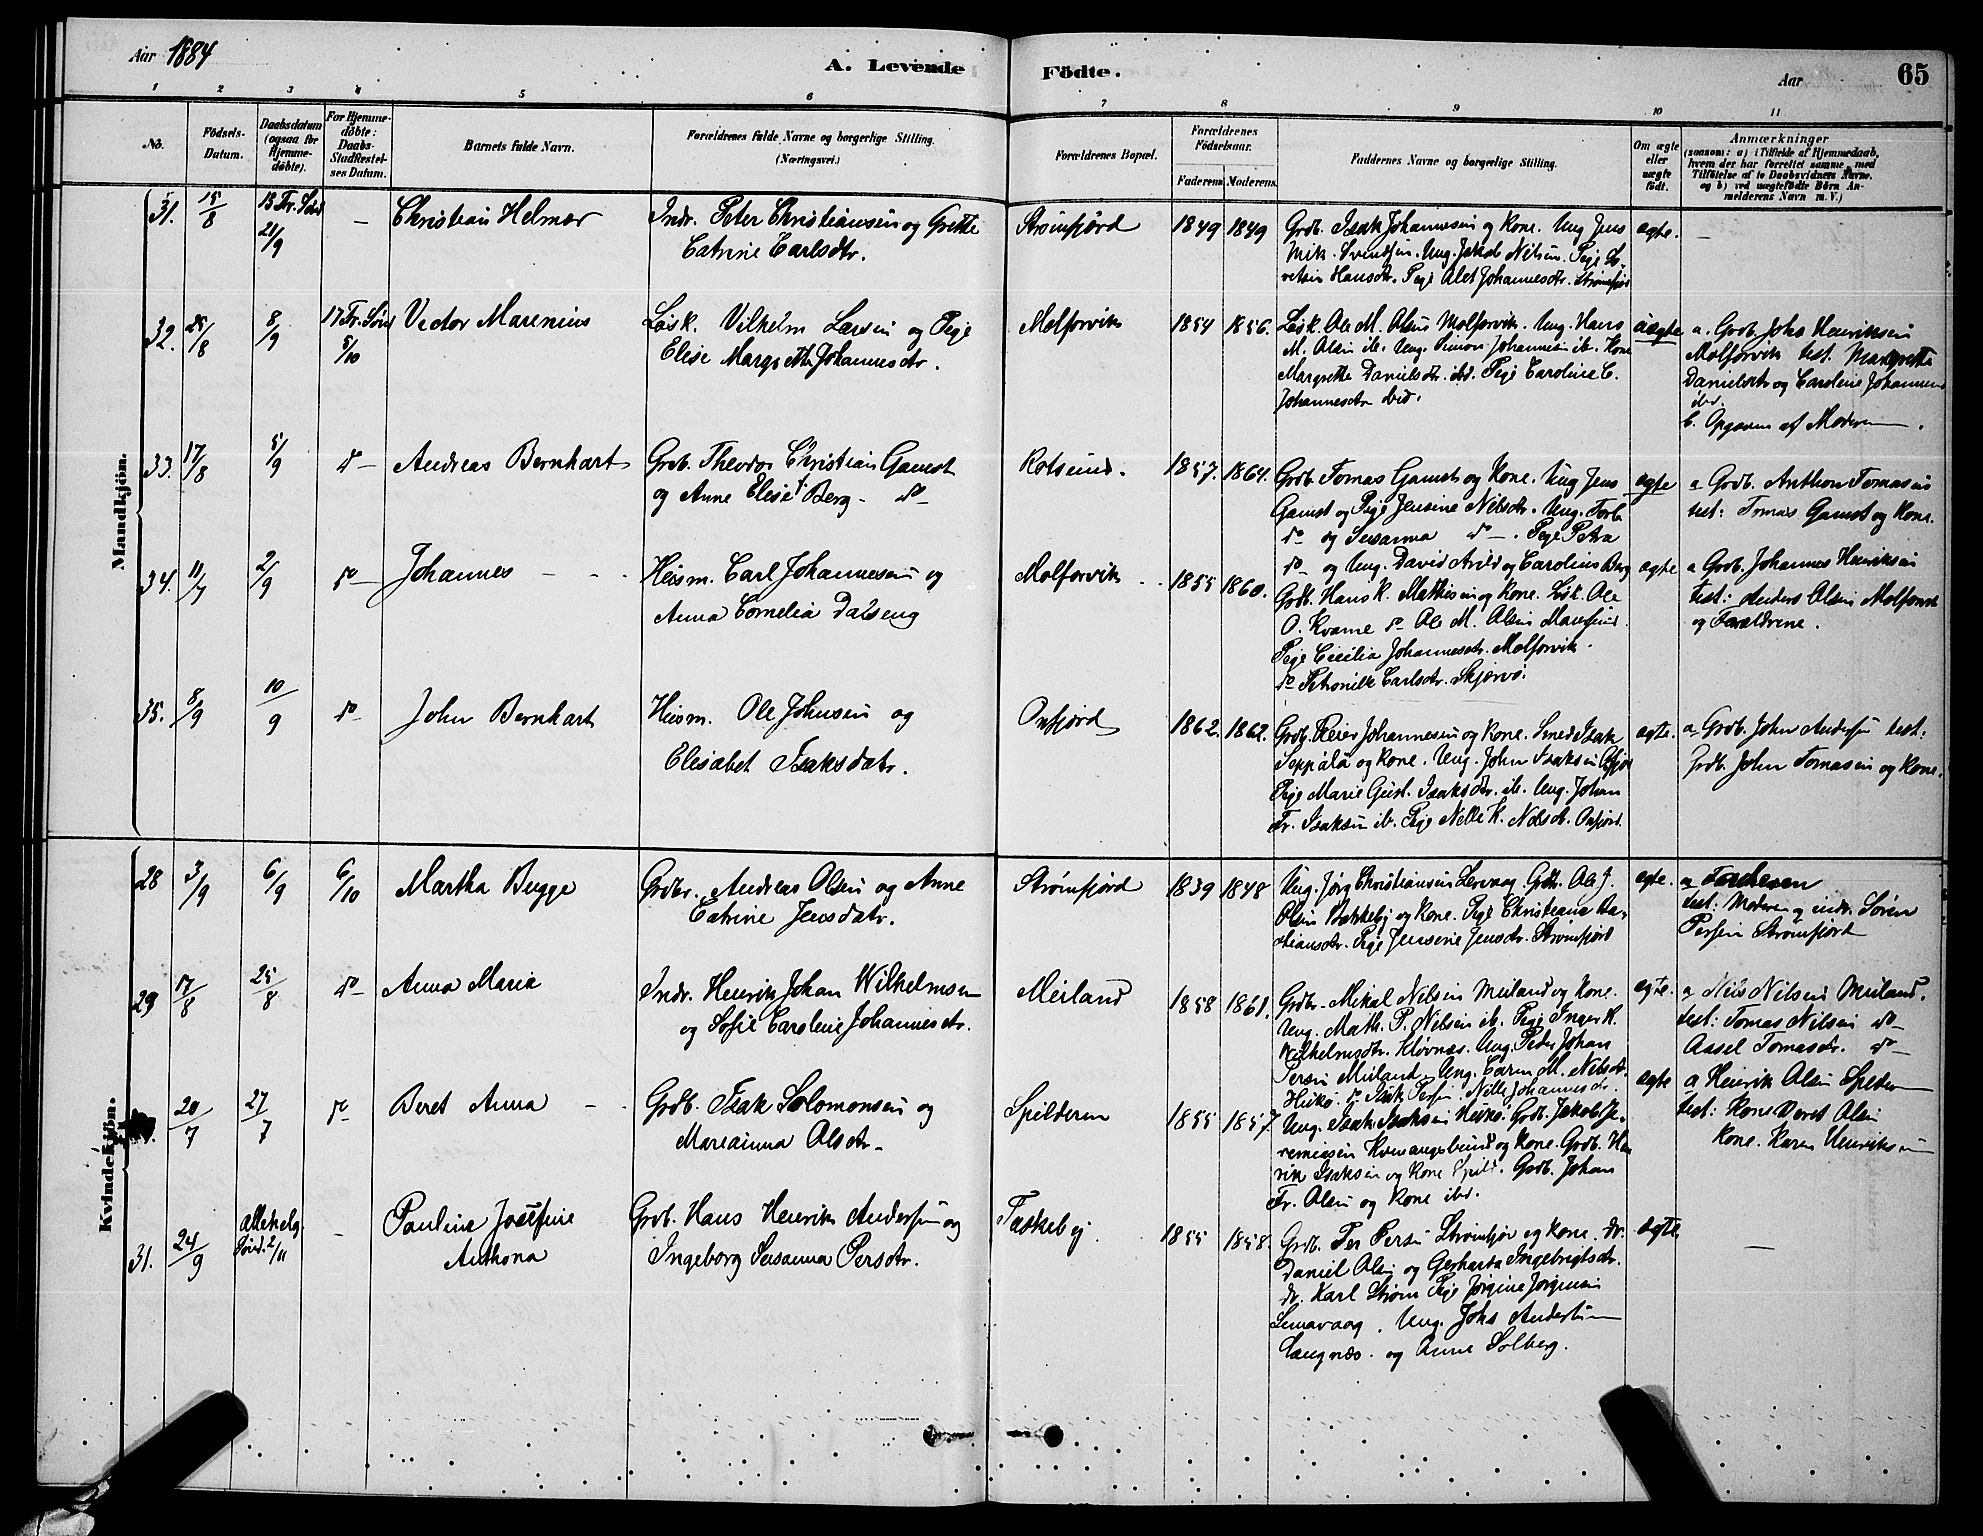 Aar 1884
A. Levende Födte.
Aar
65
1 2 3 4 5 6 7 8 9 10 11
No.
Födsels-
Datum.
Daabsdatum
(ogsaa for
Hjemme-
döbte).
For Hjemme-
döbte:
Daabs-
Stadfæstel-
ses Datum.
Barnets fulde Navn.
Forældrenes fulde Navne og borgerlige Stilling.
(Næringsvei.)
Forældrenes Bopæl.
Forældrenes
Födselsaar.
Faderens Moderens.
Faddernes Navne og borgerlige Stilling.
Om ægte
eller
uægte
födt.
Anmærkninger
(saasom: a) i Tilfælde af Hjemmedaab,
hvem der har forrettet samme, med
Tilföielse af to Daabsvidners Navne,
og b) ved uægtefödte Börn An-
melderens Navn m. V.)
Mandkjön.
31. 15/8
21/9
–
Christian Helmer
Indr. Peter Christiansen og Grette
Catrine Carlsdtr.
Strømfjord
1849 1849
Grdb. Isak Johannesen og Kone. Ung Jens
Mik. Svendsen. Ung. Jakob Nilsen. Pige Lo-
Hansdtr. Pige Alet Johannesdtr. Strømfjor
ægte.
–
32. 25/8
8/9
17 Fr. Sønd
5/10
Vector Marenius
Løsk. Vilhelm Larsen og Pige
Elise Margrethe Johannesdtr.
Molforvik
1854 1856.
Løsk. Ole M. Olsen Molforvik. Ung. Hans
M. Olsen ib. Ung. Simon Johannesen ib. Kone
Margrethe Danielsdtr. ibd. Pige Caroline C.
Johannesdtr ibid.
uægte
a. Grdb. Johs Henriksen
Molforvik test. Margrette
Danielsdtr og Caroline Johannesd
ibd.
b. Opgaven af Moderen.
33. 17/8
5/9
do
Andreas Bernhart
Grdb. Theodor Christian Gamst
og Anne Elise Berg. do
Rotsund.
1857. 1864.
Grdb. Tomas Gamst og Kone. Ung Jens
Gamst og Pige Jensine Nilsdtr. Ung. Torb.
do og Susanna do. Pige Petra
do og Ung. David Arild og Caroline Berg
ægte
a Grdb. Anthon Tomasen
test: Tomas Gamst og Kone.
34. 11/7
2/9
do
Johannes
Huusm. Carl Johannesen og
Anna Cornelia Dalseng
Molforvik
1855 1860.
Grdb. Hans K. Mathisen og Kone. Løsk. Ole
O. Kvame do Ole M. Olsen
Pige Cecilia Johannesdtr. Molforvik.
do Petronille Carlsdtr. Skjervø.
ægte
a Grdb. Johannes Henriksen
test: Anders Olsen Molforvik
og Forældrene.
35. 8/9
10/9
do
John Bernhart
Huusm. Ole Johnsen og
Elisabet Isaksdatr.
Oxfjord
1862. 1862.
Grdb. Peder Johannesen og Kone. Smed Isak
Seppälä og Kone. Ung. John Isaksen
Pige Marie Gust. Isaksdtr. ib. Ung. Johan
Fr. Isaksen ib. Pige Nelle K. Nilsdt. Oxfjord.
ægte.
a Grdb. John Andersen test.
Grdb. John Tomasen og Kone.
Kvindekjön.
28 3/9
6/9
6/10
Martha Bugge
Grdbr. Andreas Olsen og Anne
Catrine Jensdatr.
Strømfjord
1839 1848
Ung. Jørg Christiansen Lervaag. Grdbr. Ole J.
Olsen Taskeby og Kone. Pige Christiana
Pige Jensine Jensdtr. Strømfjord
ægte.
a Faderen
test: Moderen og indr. Søren
Persen Strømfjord
29 17/8
25/8
do
Anna Maria
Indr. Henrik Johan Wilhelmsen
og Sofie Caroline Johannesdtr.
Meiland
1858 1861.
Grdbr. Mikal Nilsen Meiland og Kone.
Ung. Math. P. Nilsen ib. Pige Inger K.
Wilhelmsdtr. Kløvnæs. Ung. Peder Johan
Persen Meiland. Ung. Caren M. Nilsdt.
ægte.
a Nils Nilsen Meiland.
test: Tomas Nilsen do
Aasel Tomasdtr. do
20/7
27/7
do
Beret Anna
Grdb. Isak Solomonsen og
Mareanna Olsdtr.
Spilderen
1855 1857
Ung. Isak Isaksen Heikø. Grdb. Jakob Je-
remiasen Kvenangsbund og Kone. Grdb. Hen-
rik Isaksen og Kone Spild. Grdb. Johan
Fr. Olsen og Kone ibd.
ægte
a Henrik Olsen Spilderen
test: Kone Beret Olsen
Kone Karen Henriksen
31. 24/9
Allehelg.
Sønd. 2/11
–
Pauline Josefine
Anthona
Grdb. Hans Henrik Andersen og
Ingeborg Susanna Persdtr.
Taskeby.
1855 1858.
Grdb. Per Persen Strømfjor og Kone. do.
Daniel Olsen og Gerharta Ingebrigtsdtr.
do. Karl Strøm Pige Jørgine Jørgensen
Lervaag. Ung. Johs Andersen
Langnæs. og Anne Solberg.
ægte
–